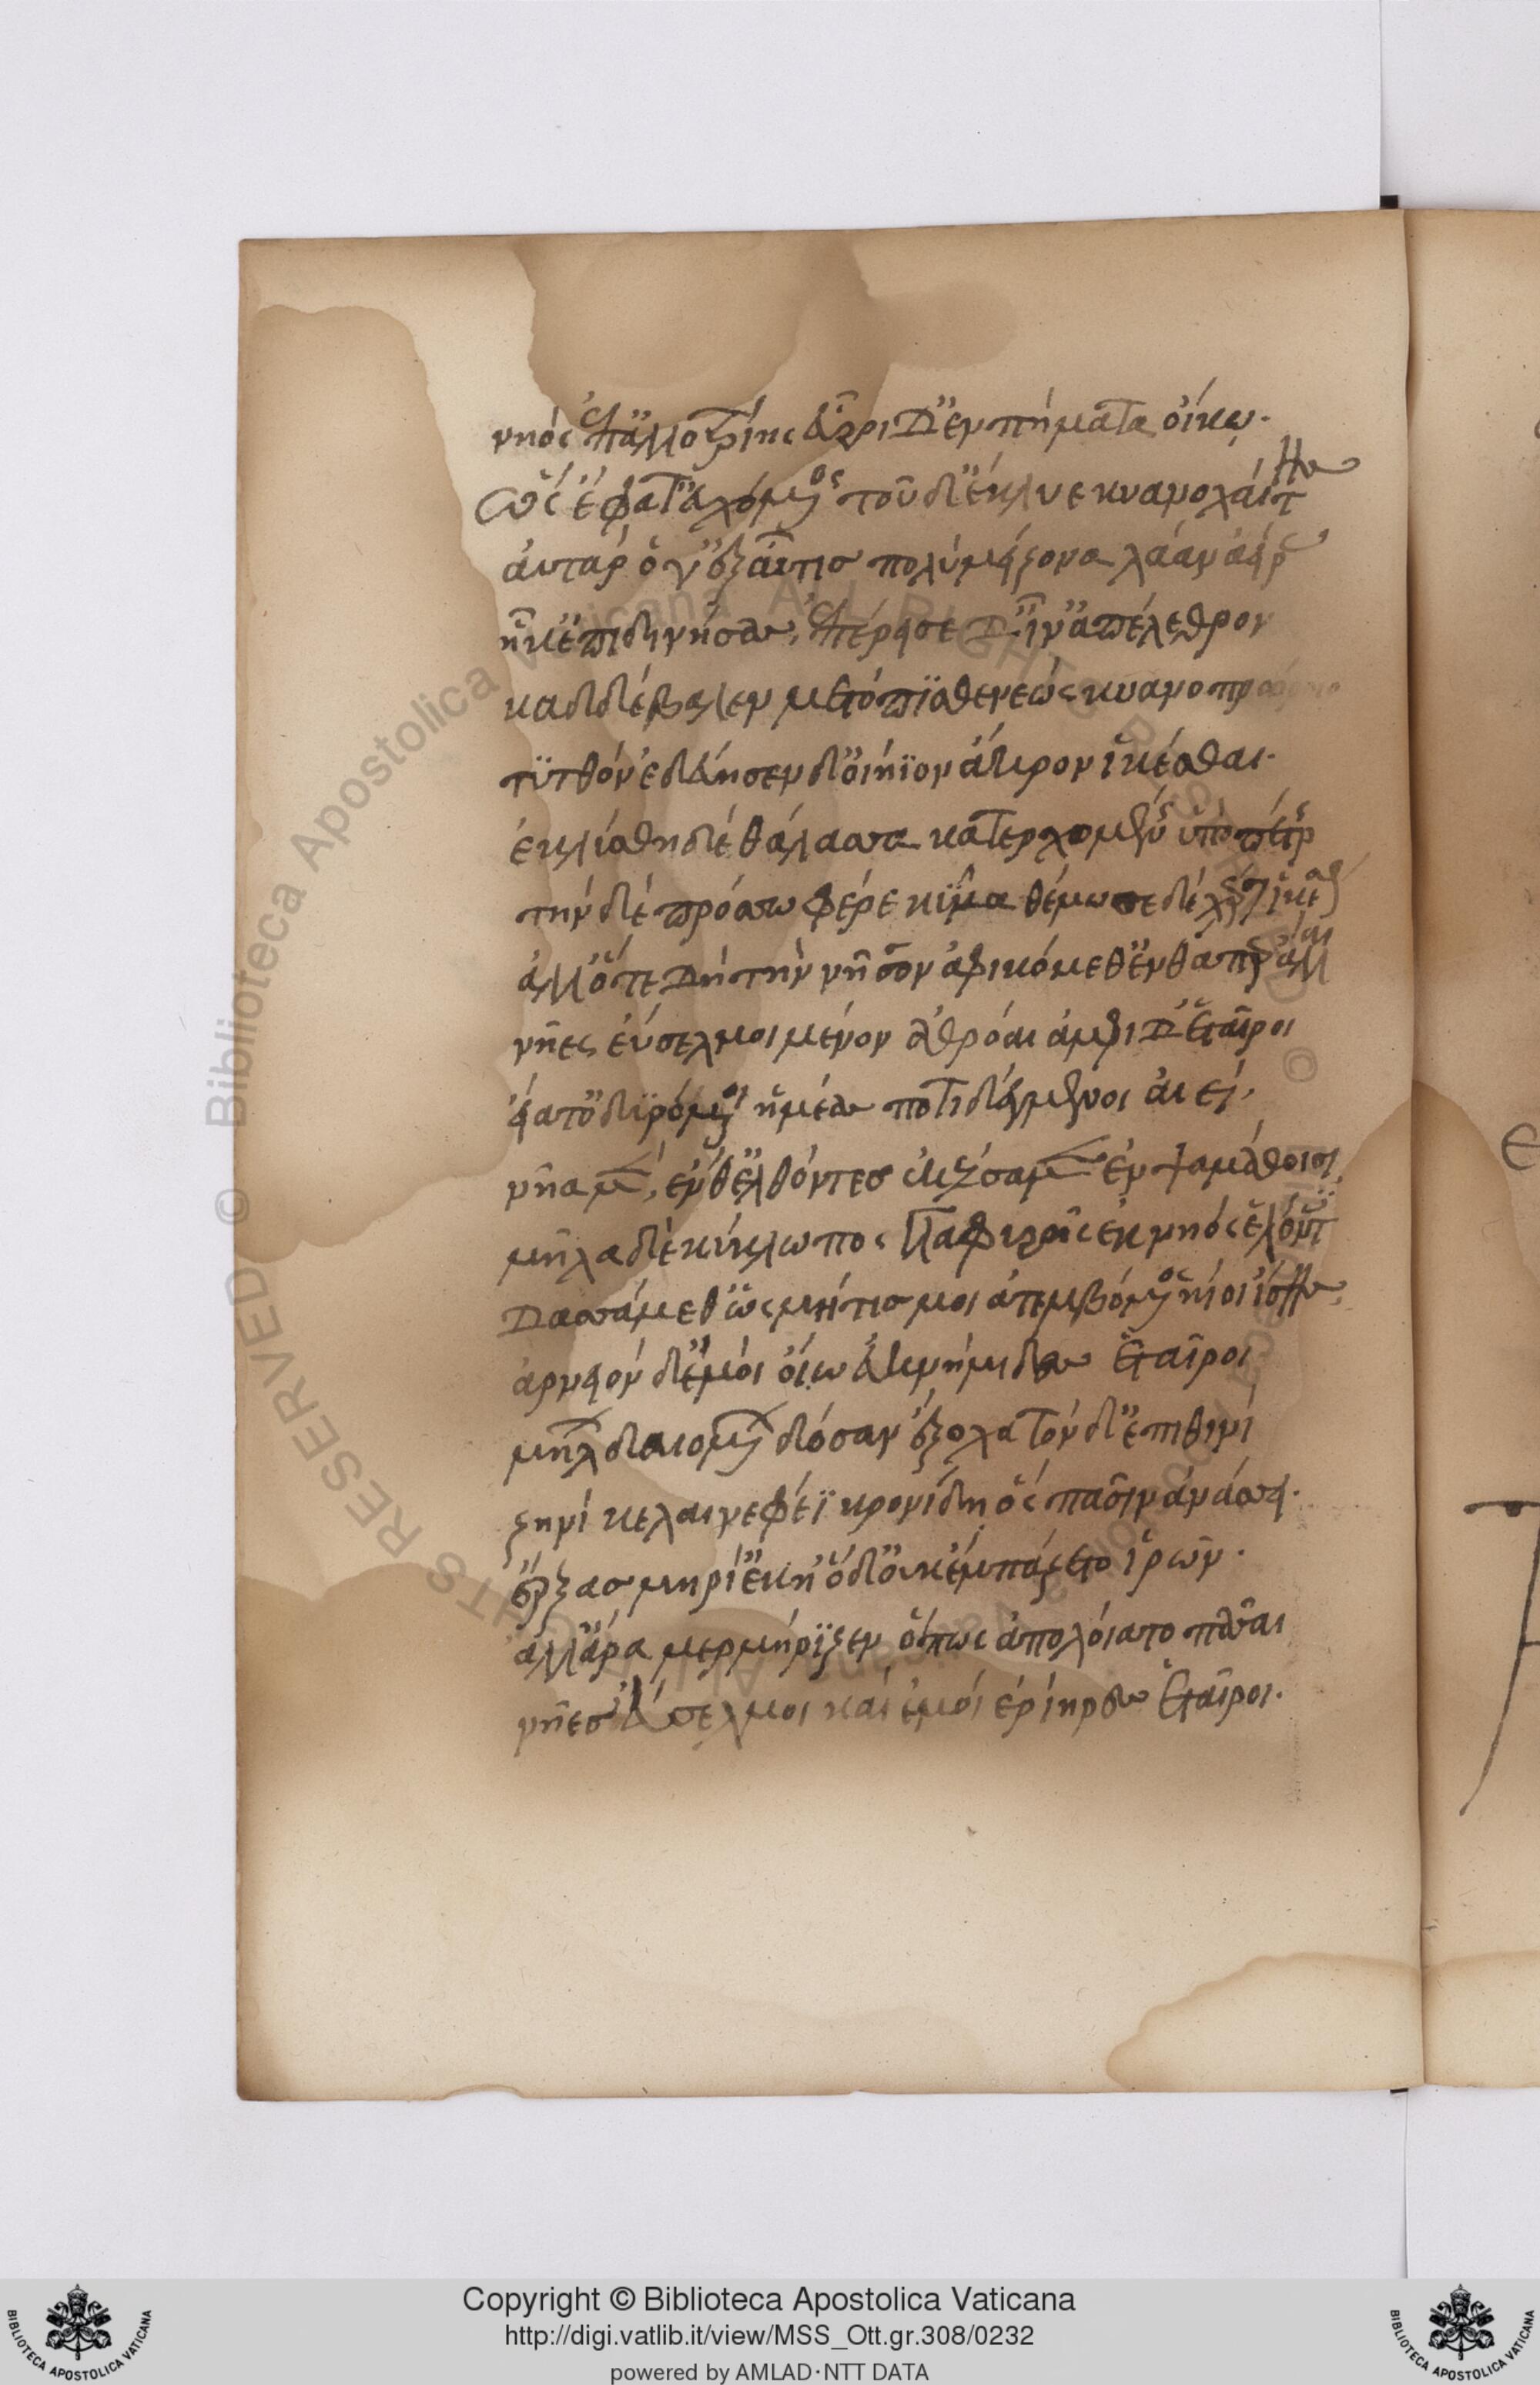 νηὸς ἐπ' ἀλλοτρίης εὕροι δ' ἐν πήματα οἴκω.
ὣς ἔφατ' εὐχόμενος τοῦ δ' ἔκλυε κυανοχαίτης
αὐτὰρ ὅ γ' ἐξαῦτις πολὺ μείζονα λᾶαν ἀείρας
ἧκ' ἐπιδινήσας, ἐπέρεισε δ' ἲν' ἀπέλεθρον
καδ δ' ἔβαλεν μετόπϊσθε νεὼς κυανοπρώροιο
τϋτθὸν ἐδεύησεν δ' οἰήϊον ἄκρον ἱκέσθαι.
ἐκλύσθη δὲ θάλασσα κατερχομένης ὑπὸ πέτρης
τὴν δὲ πρόσω φέρε κῦμα θέμωσε δὲ χέρσον ἱκέσθαι
ἀλλ' ὅτε δὴ τὴν νῆσον ἀφικόμεθ' ἔνθά περ ἄλλαι
νῆες ἐύσελμοι μένον ἀθρόαι ἀμφὶ δ' ἑταῖροι
εἵατ' ὀδυρόμενοι ἡμέας ποτιδέγμενοι αἰεί.
νῆα μὲν, ἔνθ' ἐλθόντες ἐκέλσαμεν ἐν ψαμάθοισι
μῆλα δὲ κύκλωπος γλαφυρῆς ἐκ νηὸς ἑλόντες
δασσάμεθ' ὡς μήτις μοι ἀτεμβόμενος κίοι ἴσης,
ἀρνειὸν δ' ἐμοὶ οἴω ἐϋκνήμιδες ἑταῖροι
μήλων δαιομένων δόσαν ἔξοχα τὸν δ' ἐπὶ θινὶ
ζηνὶ κελαινεφέϊ κρονίδη ὃς πᾶσιν ἀνάσσει.
ῥέξας μηρί' ἔκηον ὁ δ' οὐκ ἐμπάζετο ἱρῶν.
ἀλλ' ἄρα μερμήρϊζεν ὅπως ἀπολοίατο πᾶσαι
νῆες ἐΰσελμοι καὶ ἐμοὶ ἐρίηρες ἑταῖροι.
Copyright © Biblioteca Apostolica Vaticana
http://digi.vatlib.it/view/MSS_Ott.gr.308/0232
powered by AMLAD·NTT DATA